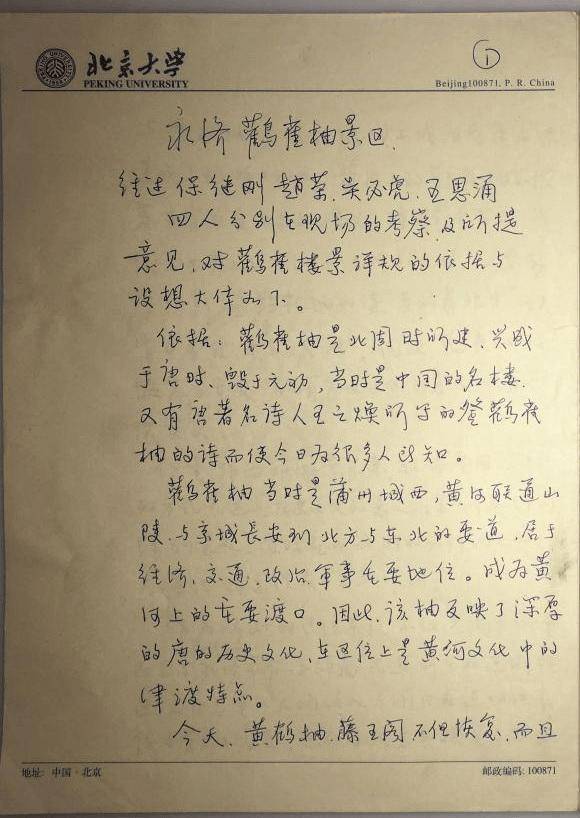 ①
北京大学
PEKING UNIVERSITY
Beijing100871, P. R. China
永济 鹳雀楼景区.
经过 保继刚 赵荣. 吴必虎. 王思涌
四人分别在现场的考察,及所提
意见,对鹳雀楼景详规的依据与
设想大体如下。
依据:鹳雀楼是北周时所建,兴盛
于唐时、毁于元初,当时是中国的名楼.
又有唐著名诗人王之焕所写的登鹳雀
楼的诗而使今日为很多人所知。
鹳雀楼 当时是蒲州城西,黄河联通山
陵,与京城長安到北方与东北的要道,居于
经济,交通,政治,軍事重要地位。成为黄
河上的重要渡口。因此,该楼反映了深厚
的唐的历史文化,在区位上是黄河文化中的
津渡特点。
今天,黄鹤楼,藤王阁不但恢复,而且
地址: 中国·北京
邮政编码: 100871